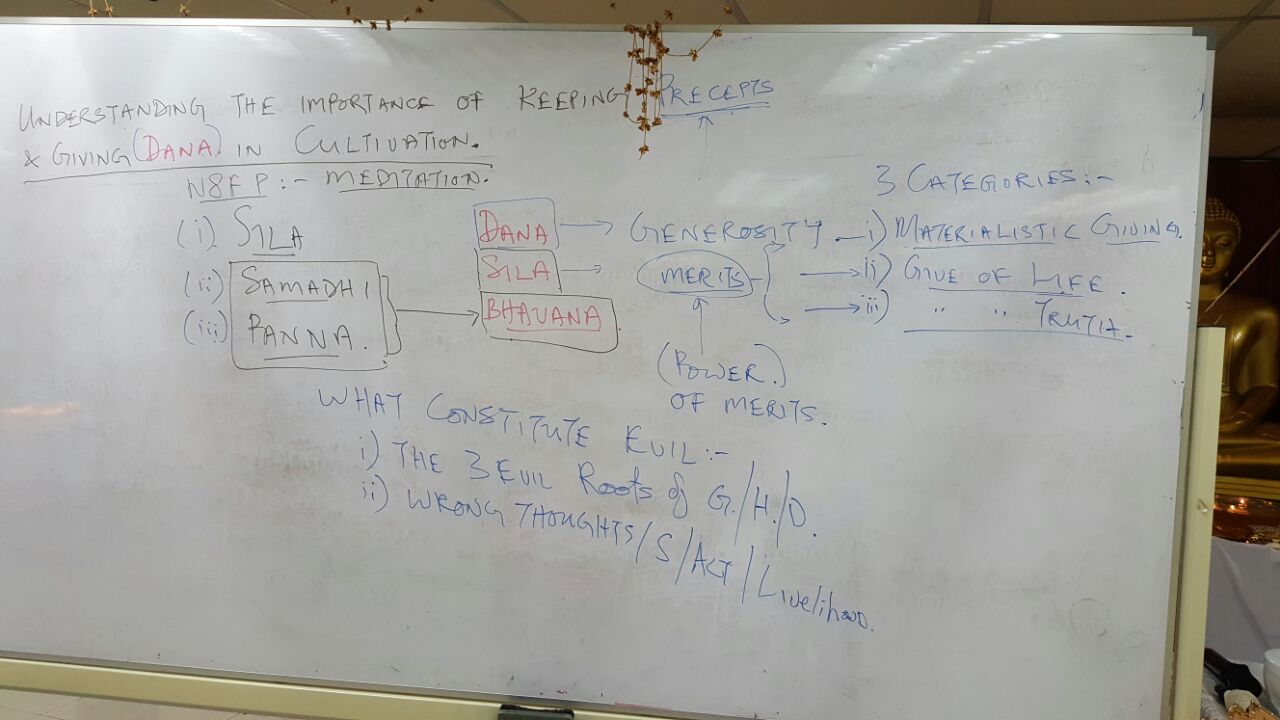 UNDERSTANDING THE IMPORTANCE OF KEEPING PRECEPTS
& GIVING (DANA) IN CULTIVATION.
N8FP:- MEDITATION.
(i). SILA
(ii) SAMADHI
(iii) PANNA.
DANA → GENEROSITY
SILA → MERITS
BHAVANA.
(POWER.)
OF MERITS.
3 CATEGORIES:-
i) MATERIALISTIC GIVING.
→ ii) GIVE OF LIFE.
→ iii) " " TRUTH.
WHAT CONSTITUTE EVIL:-
i) THE 3 EVIL Roots of G./H./D.
ii) WRONG THOUGHTS/S/ACT/Livelihood.